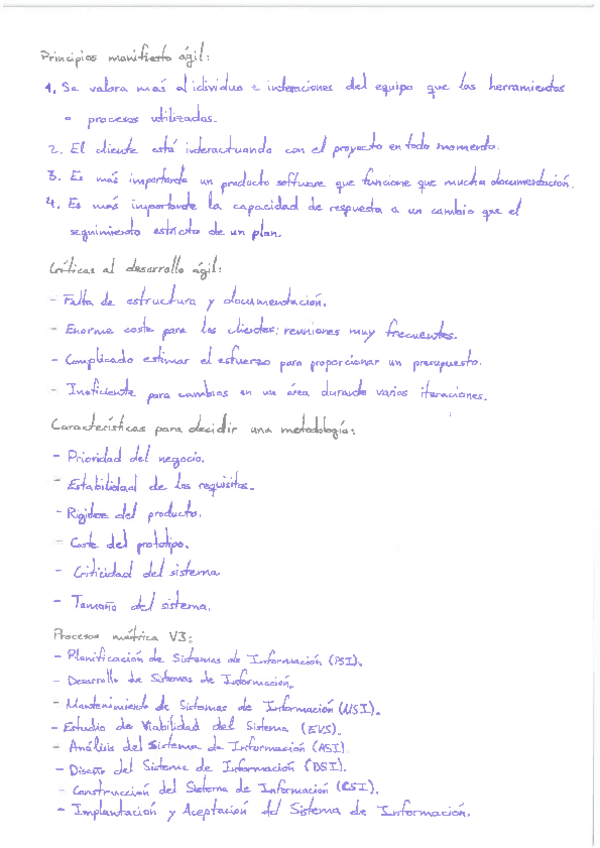 Principios manifiesto ágil:
1. Se valora más al individuo e interaciones del equipo que las herramientas
o procesos utilizados.
2. El cliente está interactuando con el proyecto en todo momento.
3. Es más importante un producto software que funcione que mucha documentación.
4. Es más importante la capacidad de respuesta a un cambio que el
seguimiento estricto de un plan.
Críticas al desarrollo ágil:
- Falta de estructura y documentación.
- Enorme coste para los clientes: reuniones muy frecuentes.
- Complicado estimar el esfuerzo para proporcionar un presupuesto.
- Ineficiente para cambios en un área durante varias iteraciones.
Características para decidir una metodología:
- Prioridad del negocio.
- Estabilidad de los requisitos.
- Rigidez del producto.
- Coste del prototipo.
- Criticidad del sistema.
- Tamaño del sistema.
Procesos métrica V3:
- Planificación de Sistemas de Información (PSI).
- Desarrollo de Sistemas de Información.
- Mantenimiento de Sistemas de Información (MSI).
- Estudio de Viabilidad del Sistema (EVS).
- Análisis del Sistema de Información (ASI).
- Diseño del Sistema de Información (DSI).
- Construccion del Sistema de Información (CSI).
- Implantacion y Aceptacion del Sistema de Información.